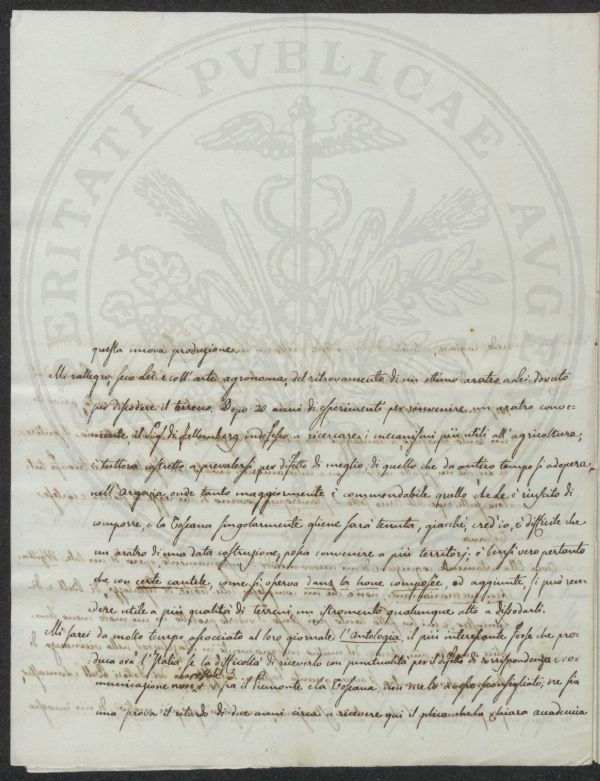 PERITATI PVBLICAE AVGE
questa nuova produzione.
Mi rallegro seco Lei e coll' arte agronoma, del ritrovamento di un ottimo aratro a Lei dovuto
per dissodare il terreno. Dopo 20 anni di esperimenti per rinvenire un aratro conve-
niente, il Sig. di Fellemberg indefesso a ricercare i mecanismi più utili all' agricoltura,
è tuttora costretto a prevalersi, per difetto di meglio, di quello che da antico tempo si adopera
nell' Argovia, onde tanto maggiormente è commendabile quello che le è riuscito di
comporre, e la Toscana singolarmente gliene sarà tenuta, giacchè, cred'io, è difficile che
un aratro di una data costruzione possa convenire a più territorj; è bensì vero pertanto
che con certe cautele, come si opera dans la houe composée, ed aggiunte, si può ren-
dere utile a più qualità di terreni, un istromento qualunque atto a dissodarli.
Mi sarei da molto tempo associato al loro giornale l'Antologia, il più interessante forse che pro-
duca ora l'Italia se la difficoltà di riceverlo con puntualità per il difetto di corrispondenza e co-
municazione fra il Piemonte e la Toscana, non me lo avesse sconsigliato; ne sia
una prova il ritardo di due anni circa a ricevere qui il plico che la chiara accademia